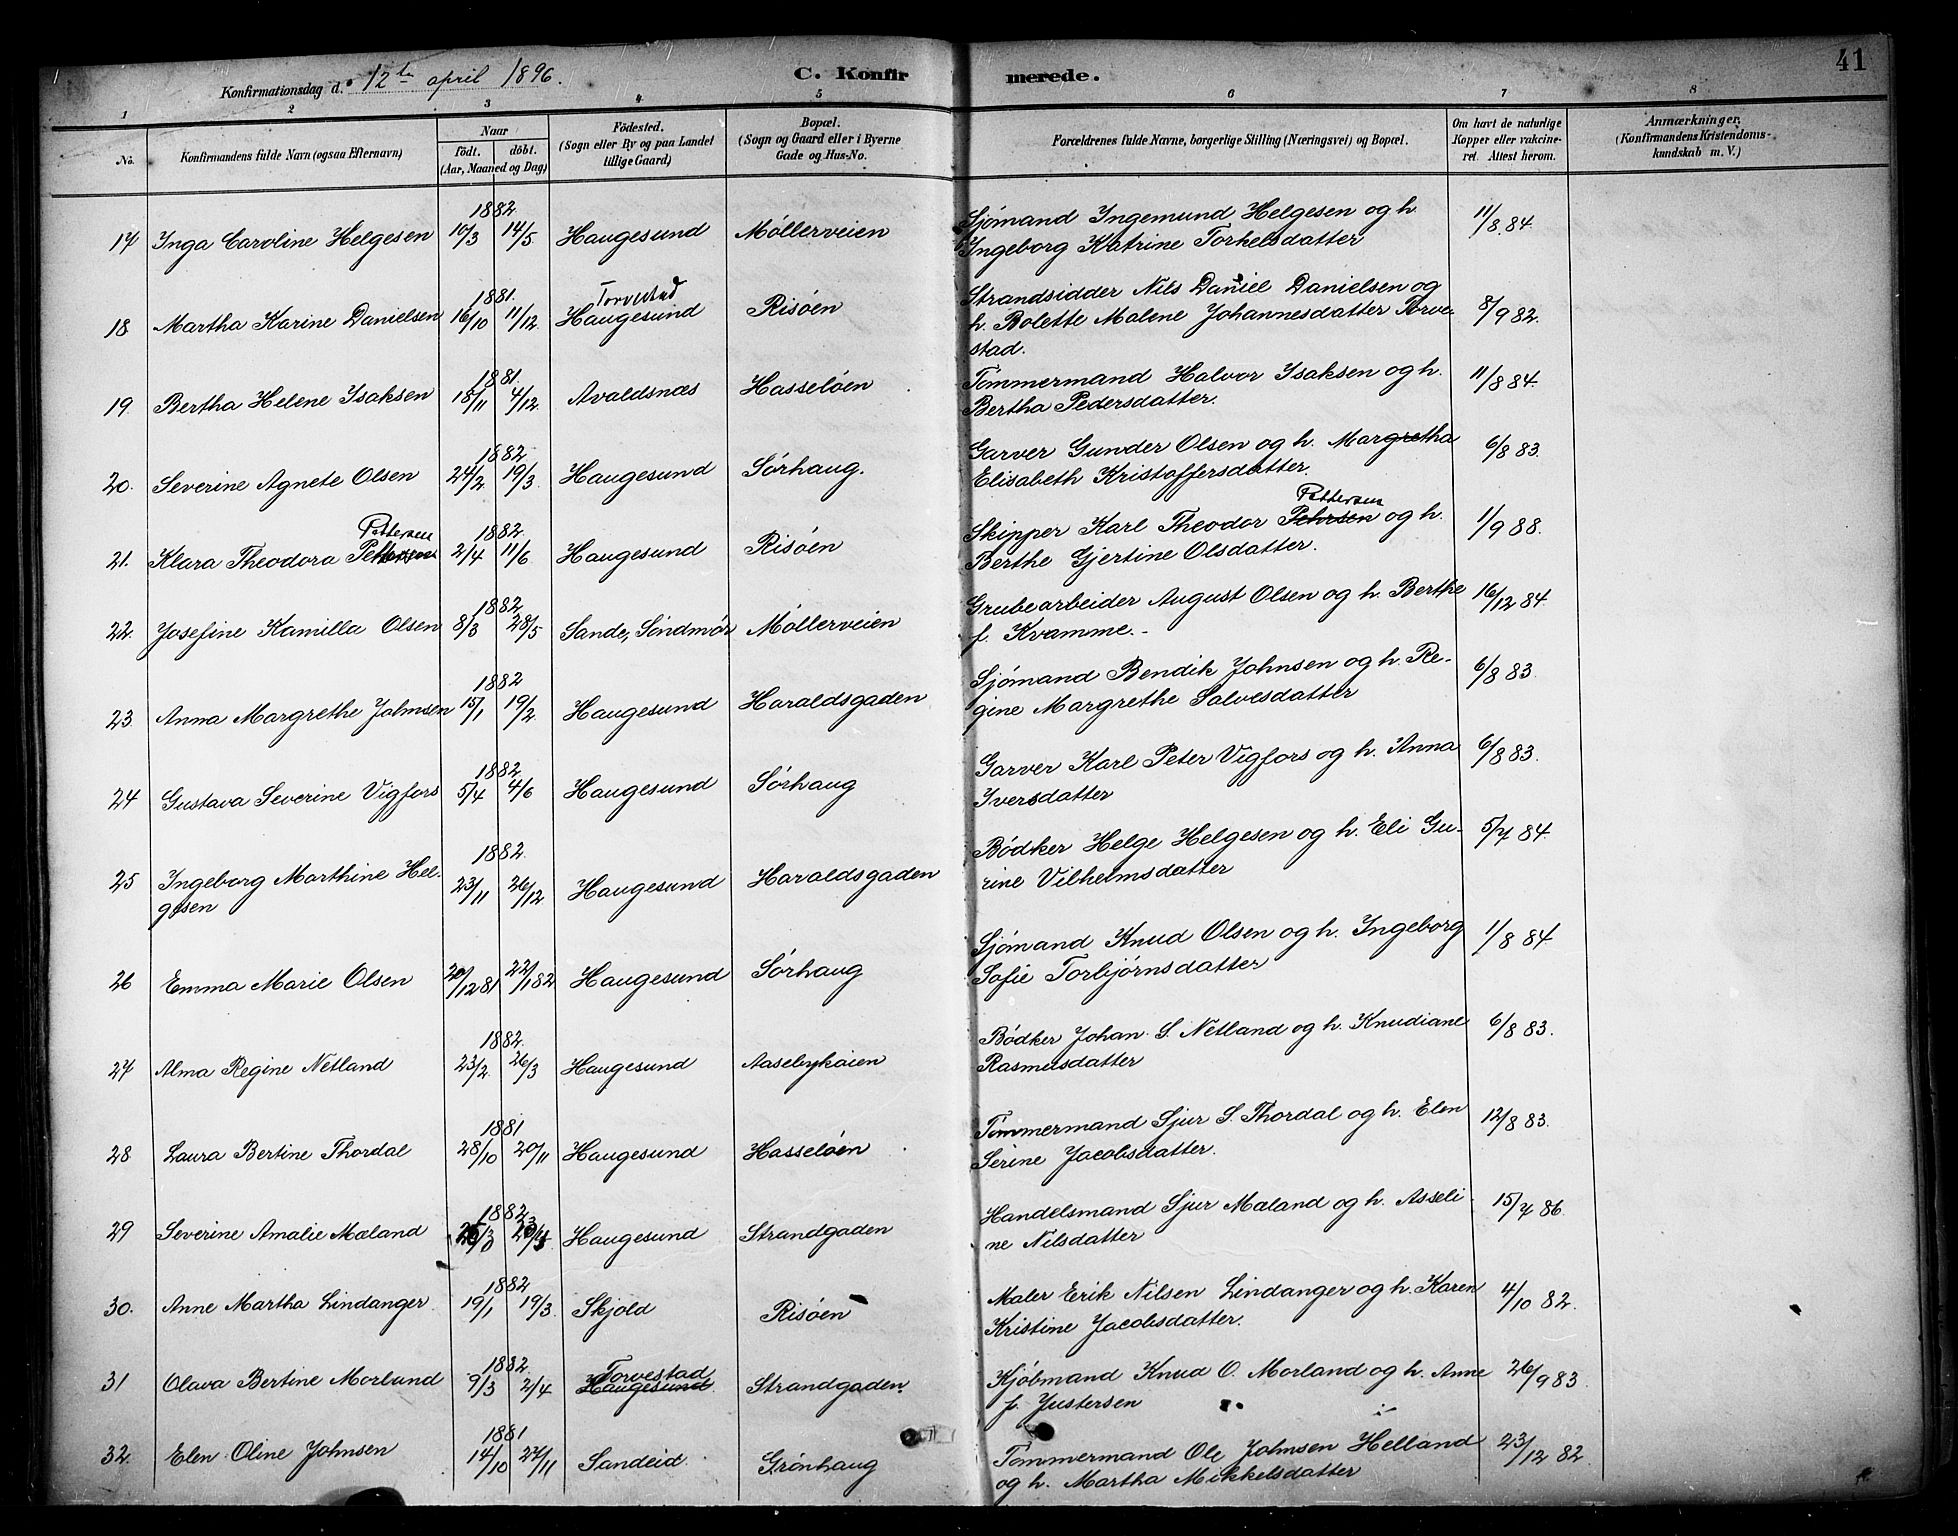 41
Konfirmationsdag d. 12te april 1896.
C. Konfirmerede.
1 2 3 4 5 6 7 8
No. Konfirmandens fulde Navn (ogsaa Efternavn) Naar født. døbt. (Aar, Maaned og Dag) Fødested. (Sogn eller By og paa Landet tillige Gaard) Bopæl. (Sogn og Gaard eller i Byerne Gade og Hus-No. Forældrenes fulde Navne, borgerlige Stilling (Næringsvei) og Bopæl. Om havt de naturlige Kopper eller vakcineret. Attest herom. Anmærkninger. (Konfirmandens Kristendomskundskab m. V.)
1882
17 Inga Caroline Helgesen 10/3 14/5 Haugesund Møllerveien Sjømand Ingemund Helgesen og h.
Ingeborg Katrine Torkelsdatter 11/8.84.
1881. Torvestad
18 Martha Karine Danielsen 16/10 11/12 Haugesund Risøen Strandsidder Nils Daniel Danielsen og
h. Bolette Malene Johannesdatter Torve-
stad. 8/9 82.
1881.
19. Bertha Helene Isaksen 18/11 4/12. Avaldsnæs Hasseløen Tømmermand Halvor Isaksen og h.
Bertha Pedersdatter. 11/8 84.
1882.
20. Severine Agnete Olsen 24/2 19/3. Haugesund Sørhaug. Garver Gunder Olsen og h. Margretha
Elisabeth Kristoffersdatter. 6/8 83.
Pettersen 1882
21. Klara Theodora Pettersen 2/4 11/6. Haugesund Risøen Skipper Karl Theodor Pehrsen Pettersen og h.
Berthe Gjertine Olsdatter. 1/9 88.
1882
22. Josefine Kamilla Olsen 8/3 28/5 Sande, Søndmør Møllerveien Grubearbeider August Olsen og h. Berthe
f. Kvamme. - 16/12 84.
1882
23. Anna Margrethe Johnsen 15/1 19/2 Haugesund Haraldsgaden Sjømand Bendik Johnsen og h. Re-
gine Margrethe Salvesdatter 6/8 83.
1882
24 Gustava Severine Vigfors 5/4 4/6 Haugesund Sørhaug Garver Karl Peter Vigfors og h. Anna
Iversdatter 6/8 83.
1882.
25 Ingeborg Marthine Hel-
gesen 23/11 26/12. Haugesund Haraldsgaden Bødker Helge Helgesen og h. Eli Gu-
rine Vilhelmsdatter 5/7 84.
26 Emma Marie Olsen 20/12 81 22/1 82 Haugesund Sørhaug Sjømand Knud Olsen og h. Ingeborg
Sofie Torbjørnsdatter 1/8 84
1882.
27 Alma Regine Netland 23/2. 26/3 Haugesund Aasebykaien Bødker Johan S. Netland og h. Knudiane
Rasmusdatter 6/8 83.
1881
28. Laura Bertine Thordal 28/10 20/11 Haugesund Hasseløen Tømmermand Sjur S. Thordal og h. Elen
Serine Jacobsdatter. 12/8 83.
1882
29 Severine Amalie Maland Haugesund Strandgaden Handelsmand Sjur Maland og h. Asseli-
ne Nilsdatter 15/7 86.
1882
30. Anne Martha Lindanger 19/1 19/3. Skjold Risøen Maler Erik Nilsen Lindanger og h. Karen
Kristine Jacobsdatter. 4/10 82.
1882. Torvestad
31 Olava Bertine Morlund 9/3 2/4 Haugesund Strandgaden. Kjøbmand Knud O. Morland og h. Anne
f. Justersen 26/9 83.
1881
32. Elen Oline Johnsen 14/10 27/11 Sandeid Grønhaug Tømmermand Ole Johnsen Helland
og h. Martha Mikkelsdatter 23/12 82.